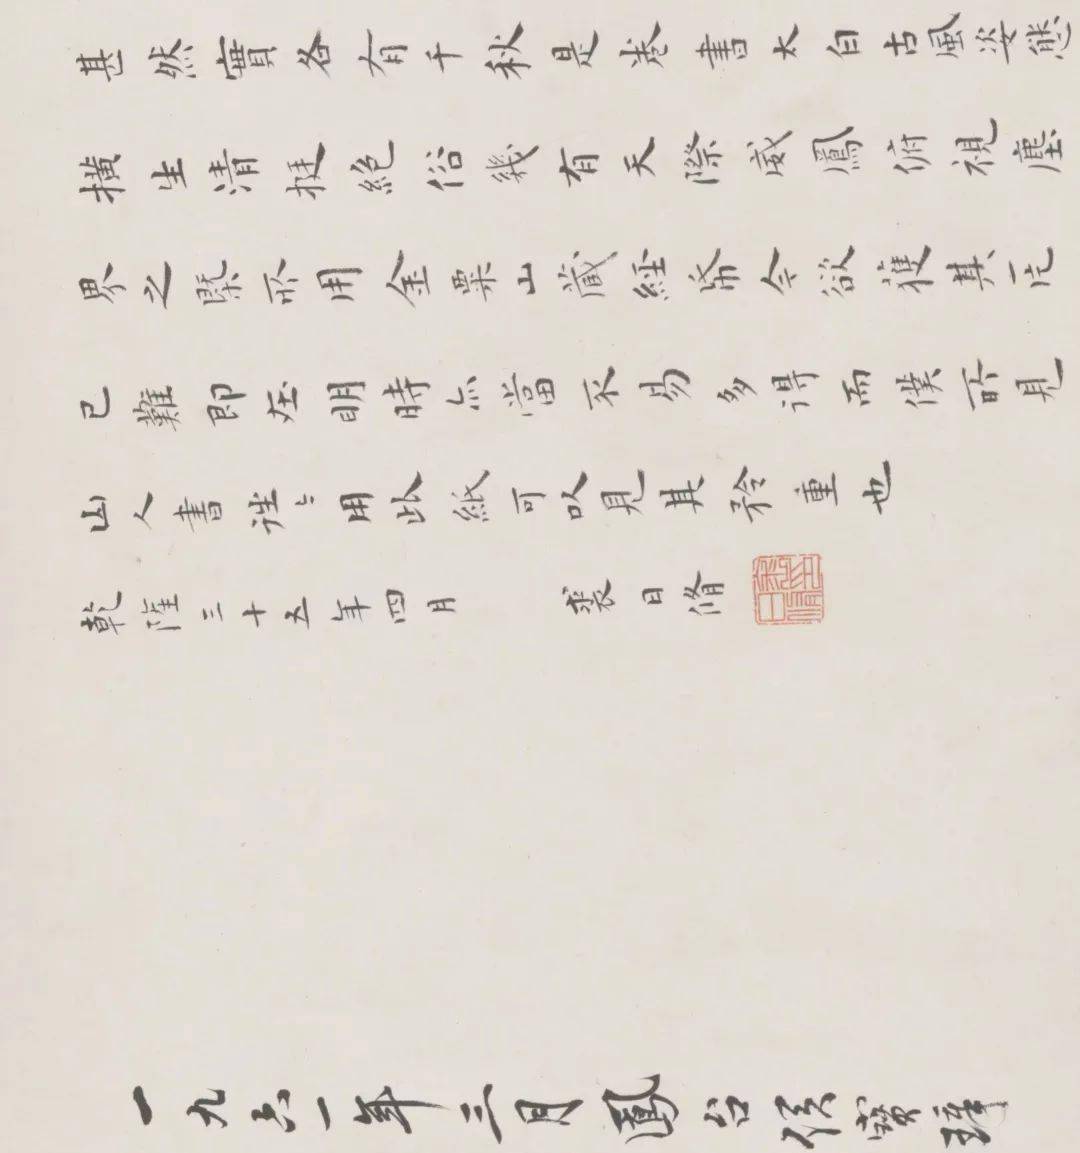 甚然實各有千秋是卷書太白古風姿態
橫生清挺絕俗幾有天際威鳳俯視塵
界之槩所用金粟山藏經紙今欲獲其片
已難即在明時亦當不易多得而僕所見
山人書往々用此紙可以見其矜重也
乾隆三十五年四月 裘日脩
裘日脩印
一九六一年三月鳳台侯寶璋